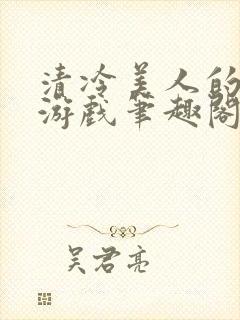 清冷美人的
游戏笔趣阁
吴君亮